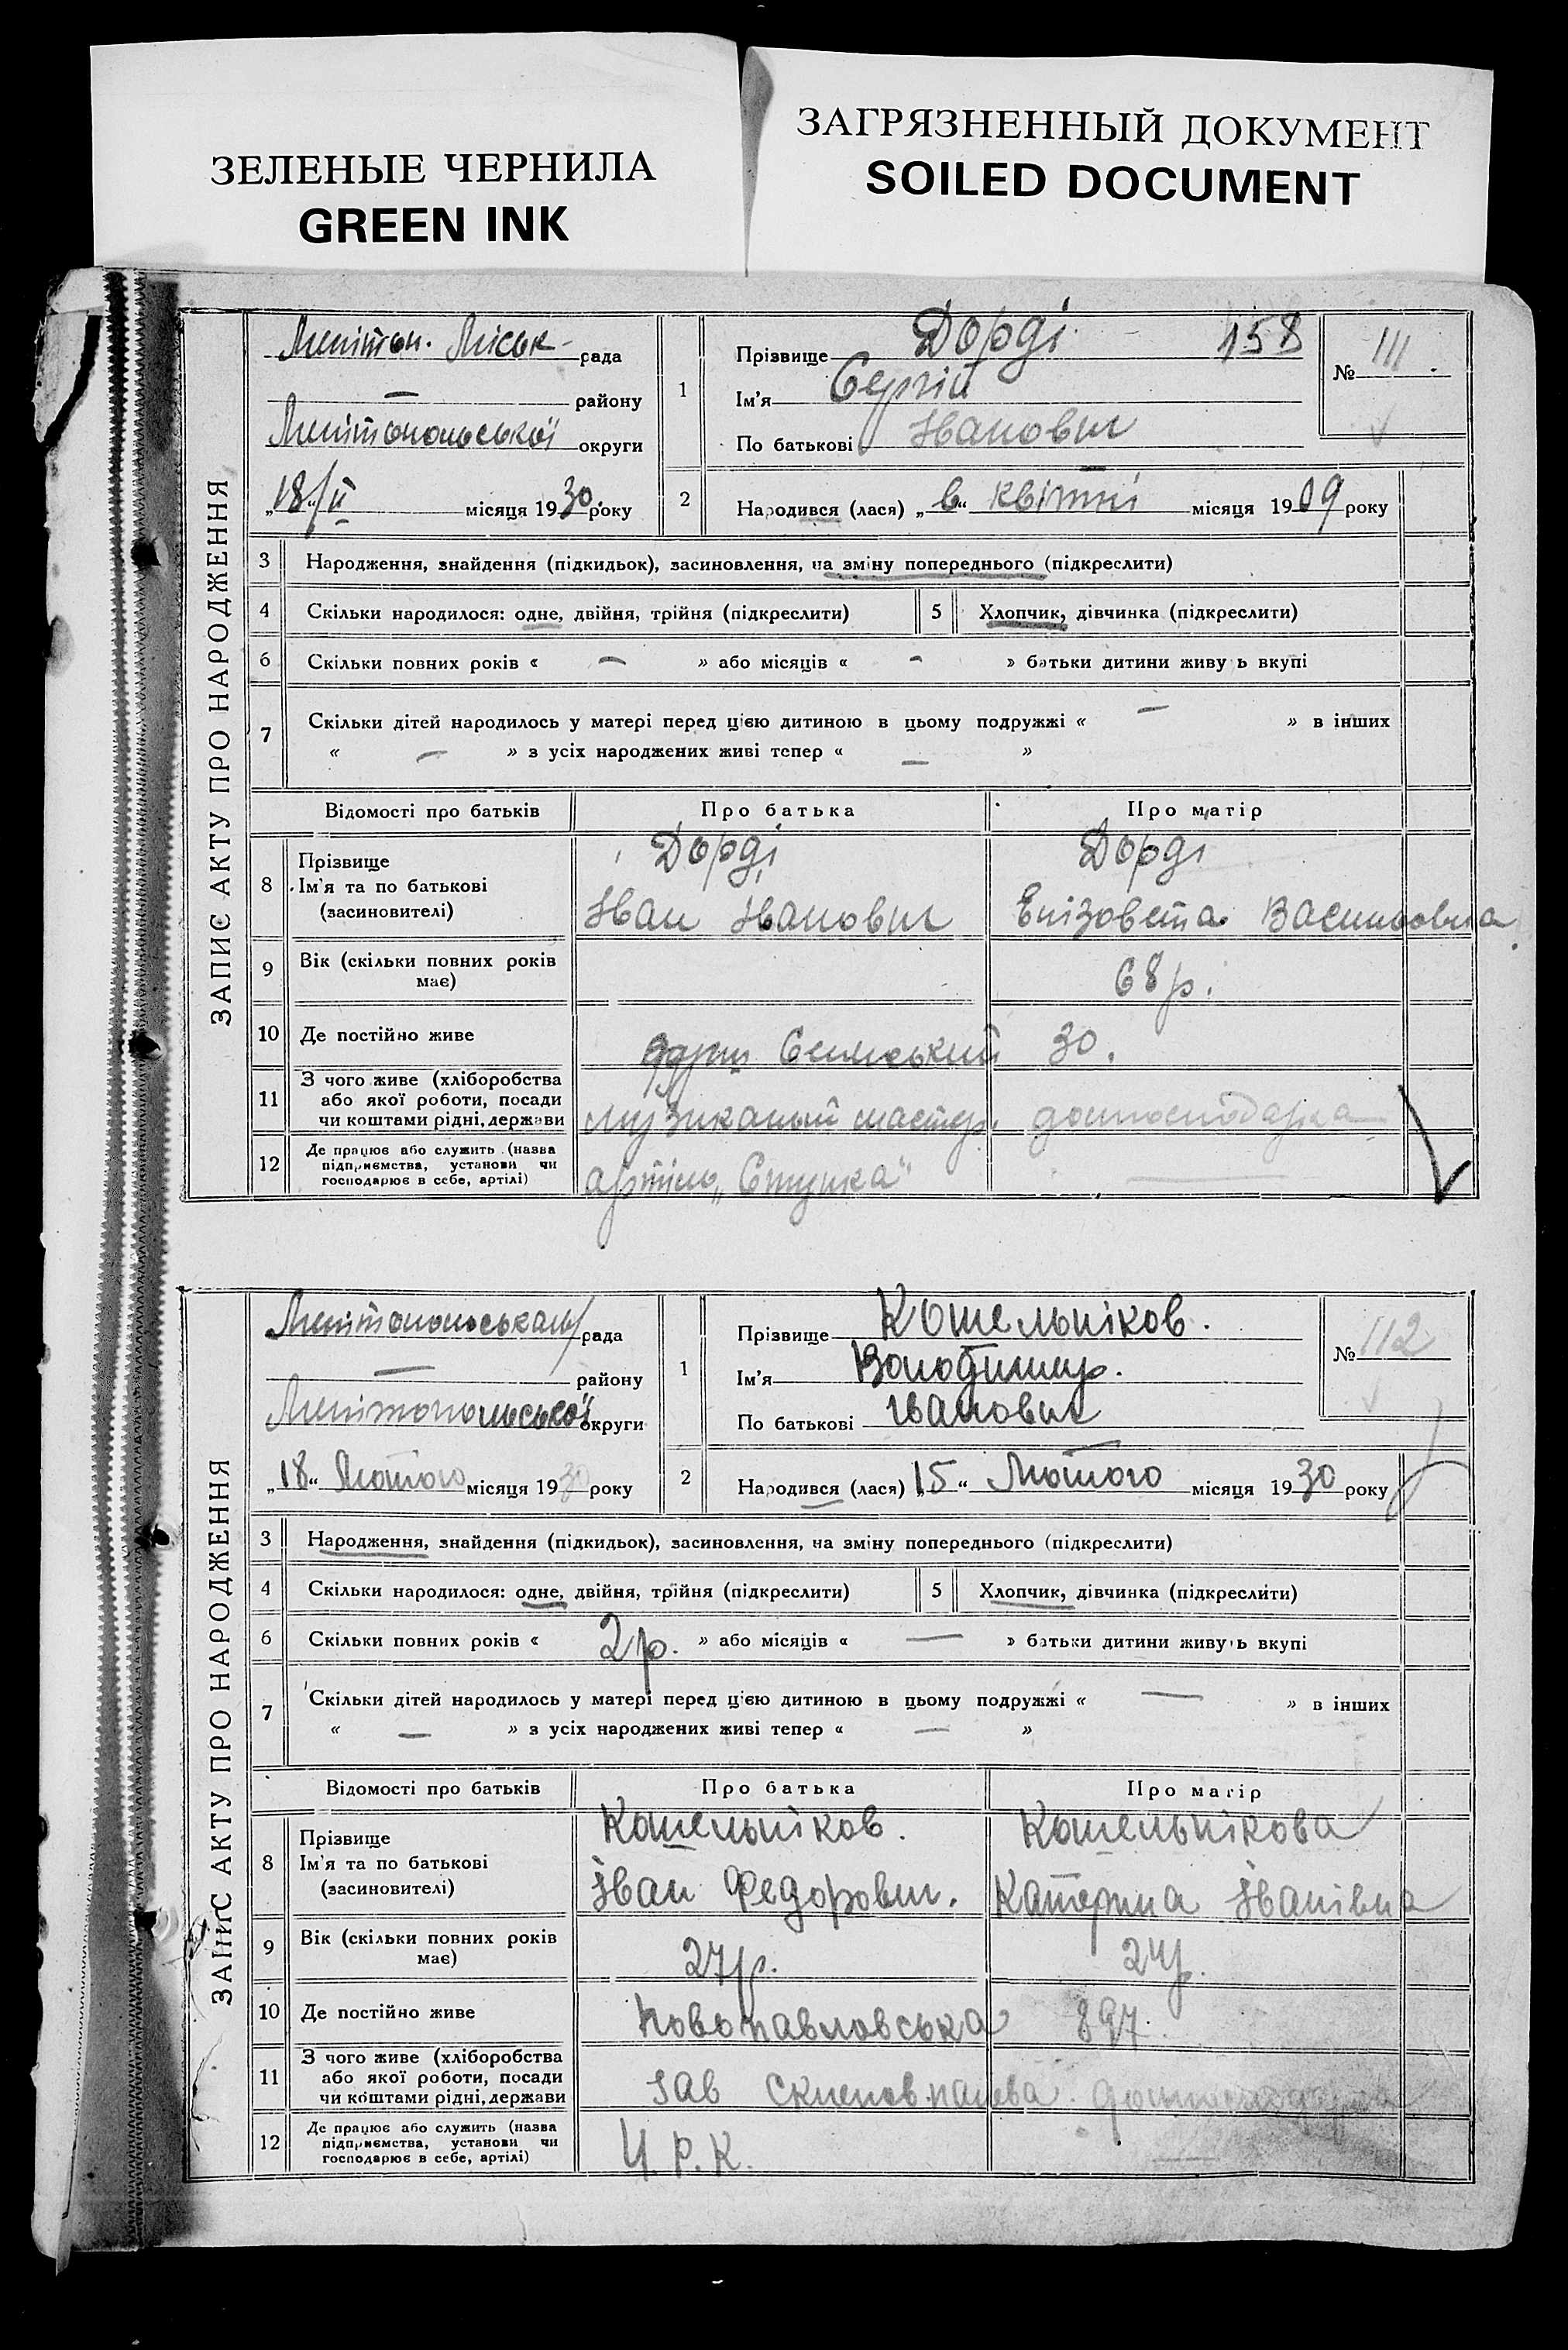 ЗЕЛЕНЫЕ ЧЕРНИЛА
GREEN INK
ЗАГРЯЗНЕННЫЙ ДОКУМЕНТ
SOILED DOCUMENT
ЗАПИС АКТУ ПРО НАРОДЖЕННЯ
Мелітоп. Міськ рада
— району
Мелітопольської округи
„18/II місяця 1930 року
1 Прізвище Дорді 158
Ім'я Сергій
По батькові Іванович
№ 111
2 Народився (лася) „в“ квітні місяця 1909 року
3 Народження, знайдення (підкидьок), засиновлення, на зміну попереднього (підкреслити)
4 Скільки народилося: одне, двійня, трійня (підкреслити) 5 Хлопчик, дівчинка (підкреслити)
6 Скільки повних років « — » або місяців « - » батьки дитини живуть вкупі
7 Скільки дітей народилось у матері перед цією дитиною в цьому подружжі « — » в інших
« — » з усіх народжених живі тепер « — »
Відомості про батьків Про батька Про матір
8 Прізвище Дорді Дорді
Ім'я та по батькові
(засиновителі) Іван Іванович Елізовета Васильовна
9 Вік (скільки повних років має) 68 р.
10 Де постійно живе 30.
11 З чого живе (хліборобства
або якої роботи, посади
чи коштами рідні, держави домогосподарка
12 Де працює або служить (назва
підприємства, установи чи
господарює в себе, артілі) артіль
ЗАПИС АКТУ ПРО НАРОДЖЕННЯ
Мелітопольська м/рада
— району
Мелітопольської округи
„18“ Лютого місяця 1930 року
1 Прізвище Котельніков.
Ім'я Володимир.
По батькові Іванович
№ 112
2 Народився (лася) „15“ Лютого місяця 1930 року
3 Народження, знайдення (підкидьок), засиновлення, на зміну попереднього (підкреслити)
4 Скільки народилося: одне, двійня, трійня (підкреслити) 5 Хлопчик, дівчинка (підкреслити)
6 Скільки повних років « 2 р. » або місяців « — » батьки дитини живуть вкупі
7 Скільки дітей народилось у матері перед цією дитиною в цьому подружжі « — » в інших
« — » з усіх народжених живі тепер « — »
Відомості про батьків Про батька Про матір
8 Прізвище Котельніков. Котельнікова
Ім'я та по батькові
(засиновителі) Іван Федорович. Катерина Іванівна
9 Вік (скільки повних років має) 27 р. 24 р.
10 Де постійно живе Новопавловська 897.
11 З чого живе (хліборобства
або якої роботи, посади
чи коштами рідні, держави зав домогосподарка
12 Де працює або служить (назва
підприємства, установи чи
господарює в себе, артілі) Ц. Р. К. —